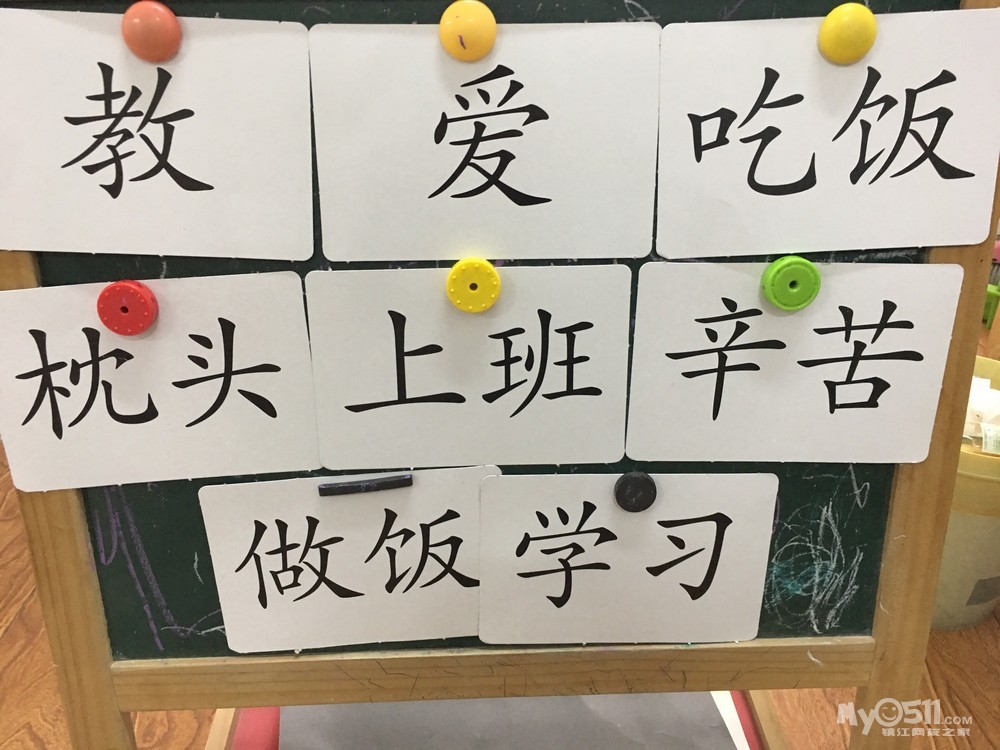 教 爱 吃饭
枕头 上班 辛苦
做饭 学习
My0511.COM
镇江网友之家